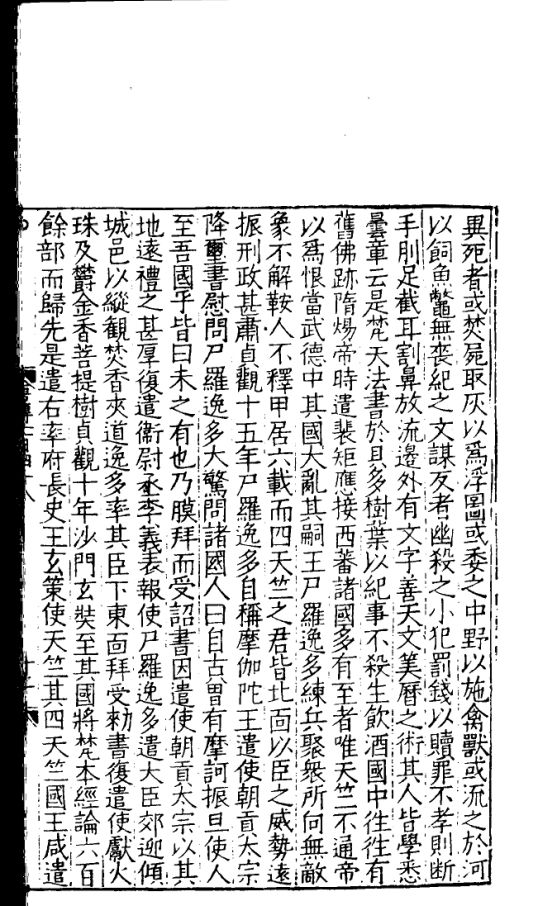 異死者或焚屍取灰以爲浮圖或委之中野以施禽獸或流之於河
以飼魚鼈無喪紀之文謀反者幽殺之小犯罰錢以贖罪不孝則断
手刖足截耳割鼻放流邊外有文字善天文筭曆之術其人皆學悉
曇章云是梵天法書於貝多樹葉以紀事不殺生飲酒國中往往有
舊佛跡隋煬帝時遣裴矩應接西蕃諸國多有至者唯天竺不通帝
以爲恨當武德中其國大亂其嗣王尸羅逸多練兵聚衆所向無敵
象不解鞍人不釋甲居六載而四天竺之君皆北面以臣之威勢遠
振刑政甚肅貞觀十五年尸羅逸多自稱摩伽陀王遣使朝貢太宗
降璽書慰問尸羅逸多大驚問諸國人曰自古曽有摩訶振旦使人
至吾國乎皆曰未之有也乃膜拜而受詔書因遣使朝貢太宗以其
地遠禮之甚厚復遣衞尉丞李義表報使尸羅逸多遣大臣郊迎傾
城邑以縱觀焚香夾道逸多率其臣下東面拜受勑書復遣使獻火
珠及鬱金香菩提樹貞觀十年沙門玄奘至其國將梵本經論六百
餘部而歸先是遣右率府長史王玄策使天竺其四天竺國王咸遣